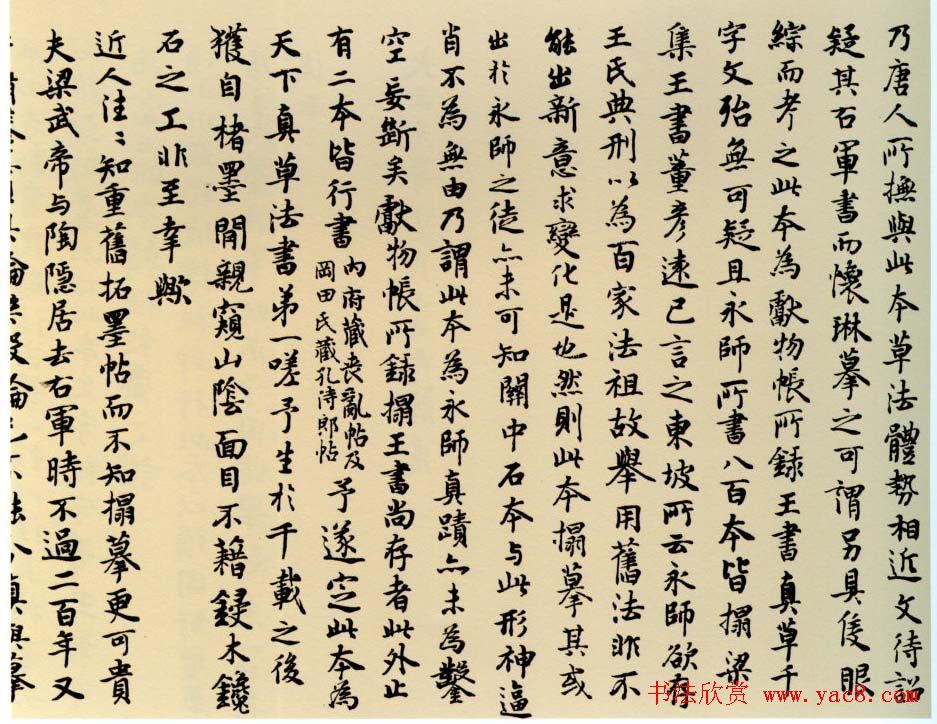 乃唐人所撫與此本草法體勢相近文待詔
疑其右軍書而懷琳摹之可謂另具隻眼
綜而考之此本為獻物帳所錄王書真草千
字文殆無可疑且永師所書八百本皆搨梁
集王書董彥遠已言之東坡所云永師欲存
王氏典刑以為百家法祖故舉用舊法非不
能出新意求變化是也然則此本搨摹其或
出於永師之徒亦未可知關中石本与此形神逼
肖不為無由乃謂此本為永師真蹟亦未為鑿
空妄斷矣獻物帳所錄搨王書尚存者此外止
有二本皆行書內府藏喪亂帖及岡田氏藏孔侍郎帖予遂定此本為
天下真草法書弟一嗟予生於千載之後
獲自楮墨間親窺山陰面目不藉鋟木鑱
石之工非至幸歟
近人往〻知重舊拓墨帖而不知搨摹更可貴
夫梁武帝与陶隱居去右軍時不過二百年又
书法欣赏 www.yac8.com